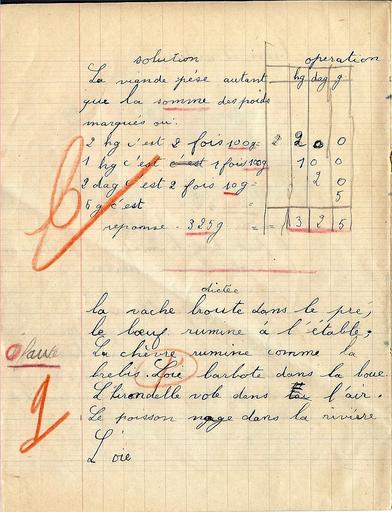 solution operation
La viande pèse autant hg dag g
que la somme des poids
marqués ou:
2 hg c'est 2 fois 100g = 2 2 0 0
1 hg c'est 1 fois 100g 1 0 0
2 dag c'est 2 fois 10g = 2 0
5 g c'est 5
reponse. 325g = = 3 2 5
dictée
la vache broute dans le pre,
le bœuf rumine à l'étable,
La chèvre rumine comme la
0 faute
brebis. Loie barbote dans la boue
L'hirondelle vole dans l'air.
9
Le poisson nage dans la rivière
L'oie